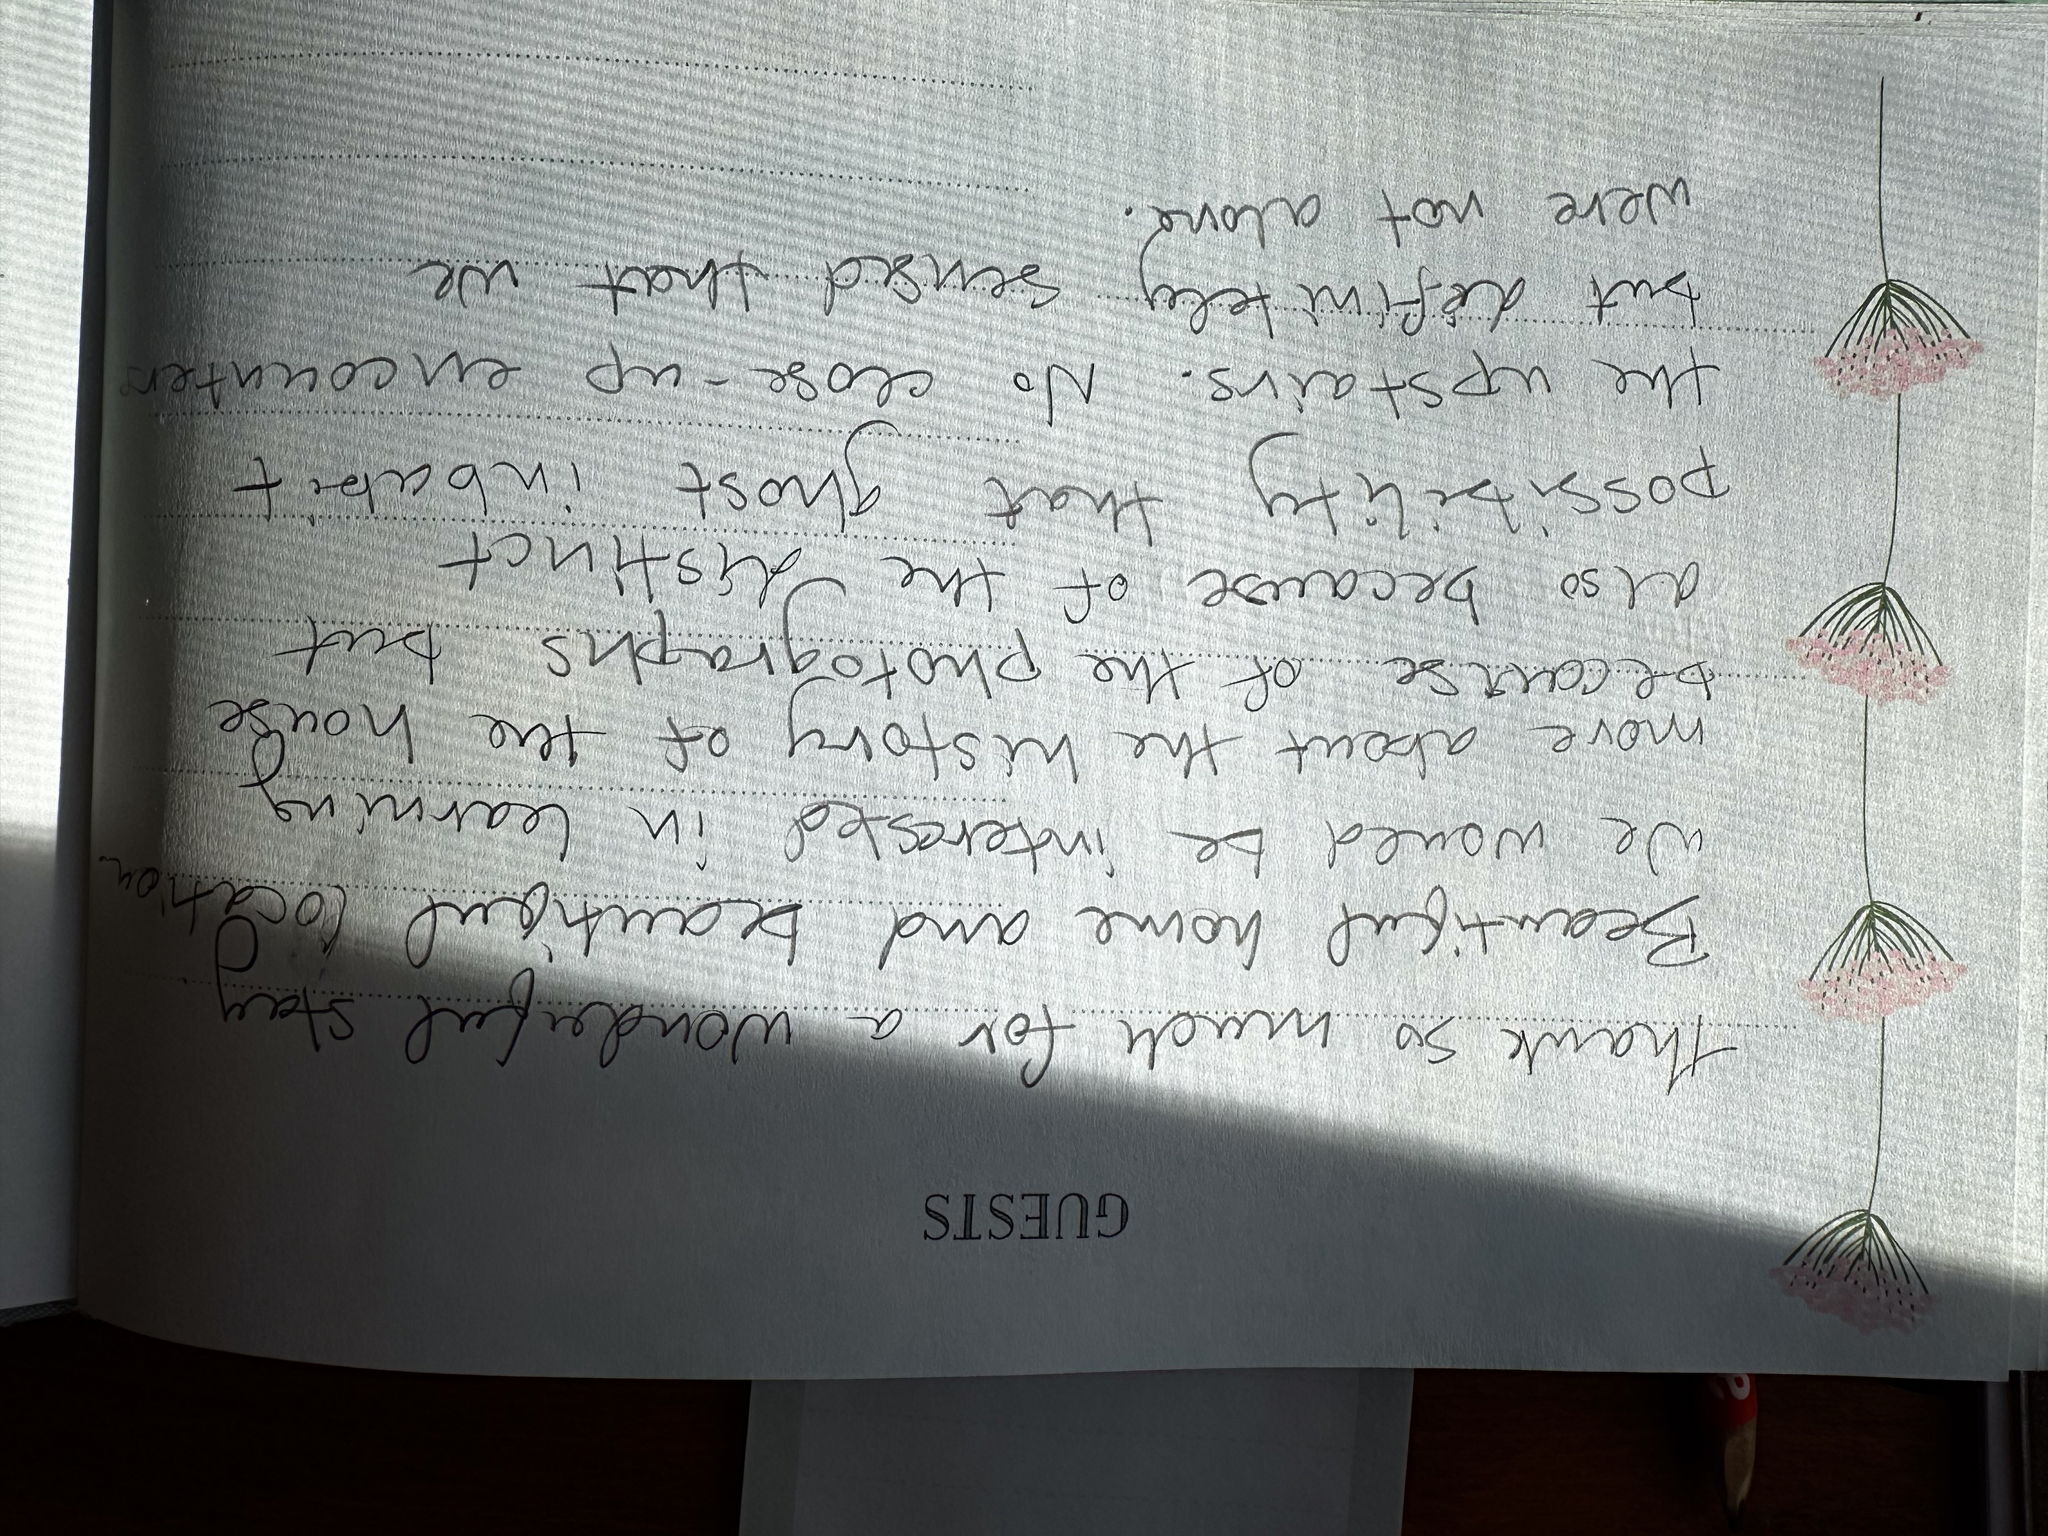 GUESTS
Thank so much for a wonderful stay
Beautiful home and beautiful location
We would be interested in learning
more about the history of the house
because of the photographs but
also because of the distinct
possibility that ghost inhabit
the upstairs. No close-up encounters
but definitely sensed that we
were not alone.